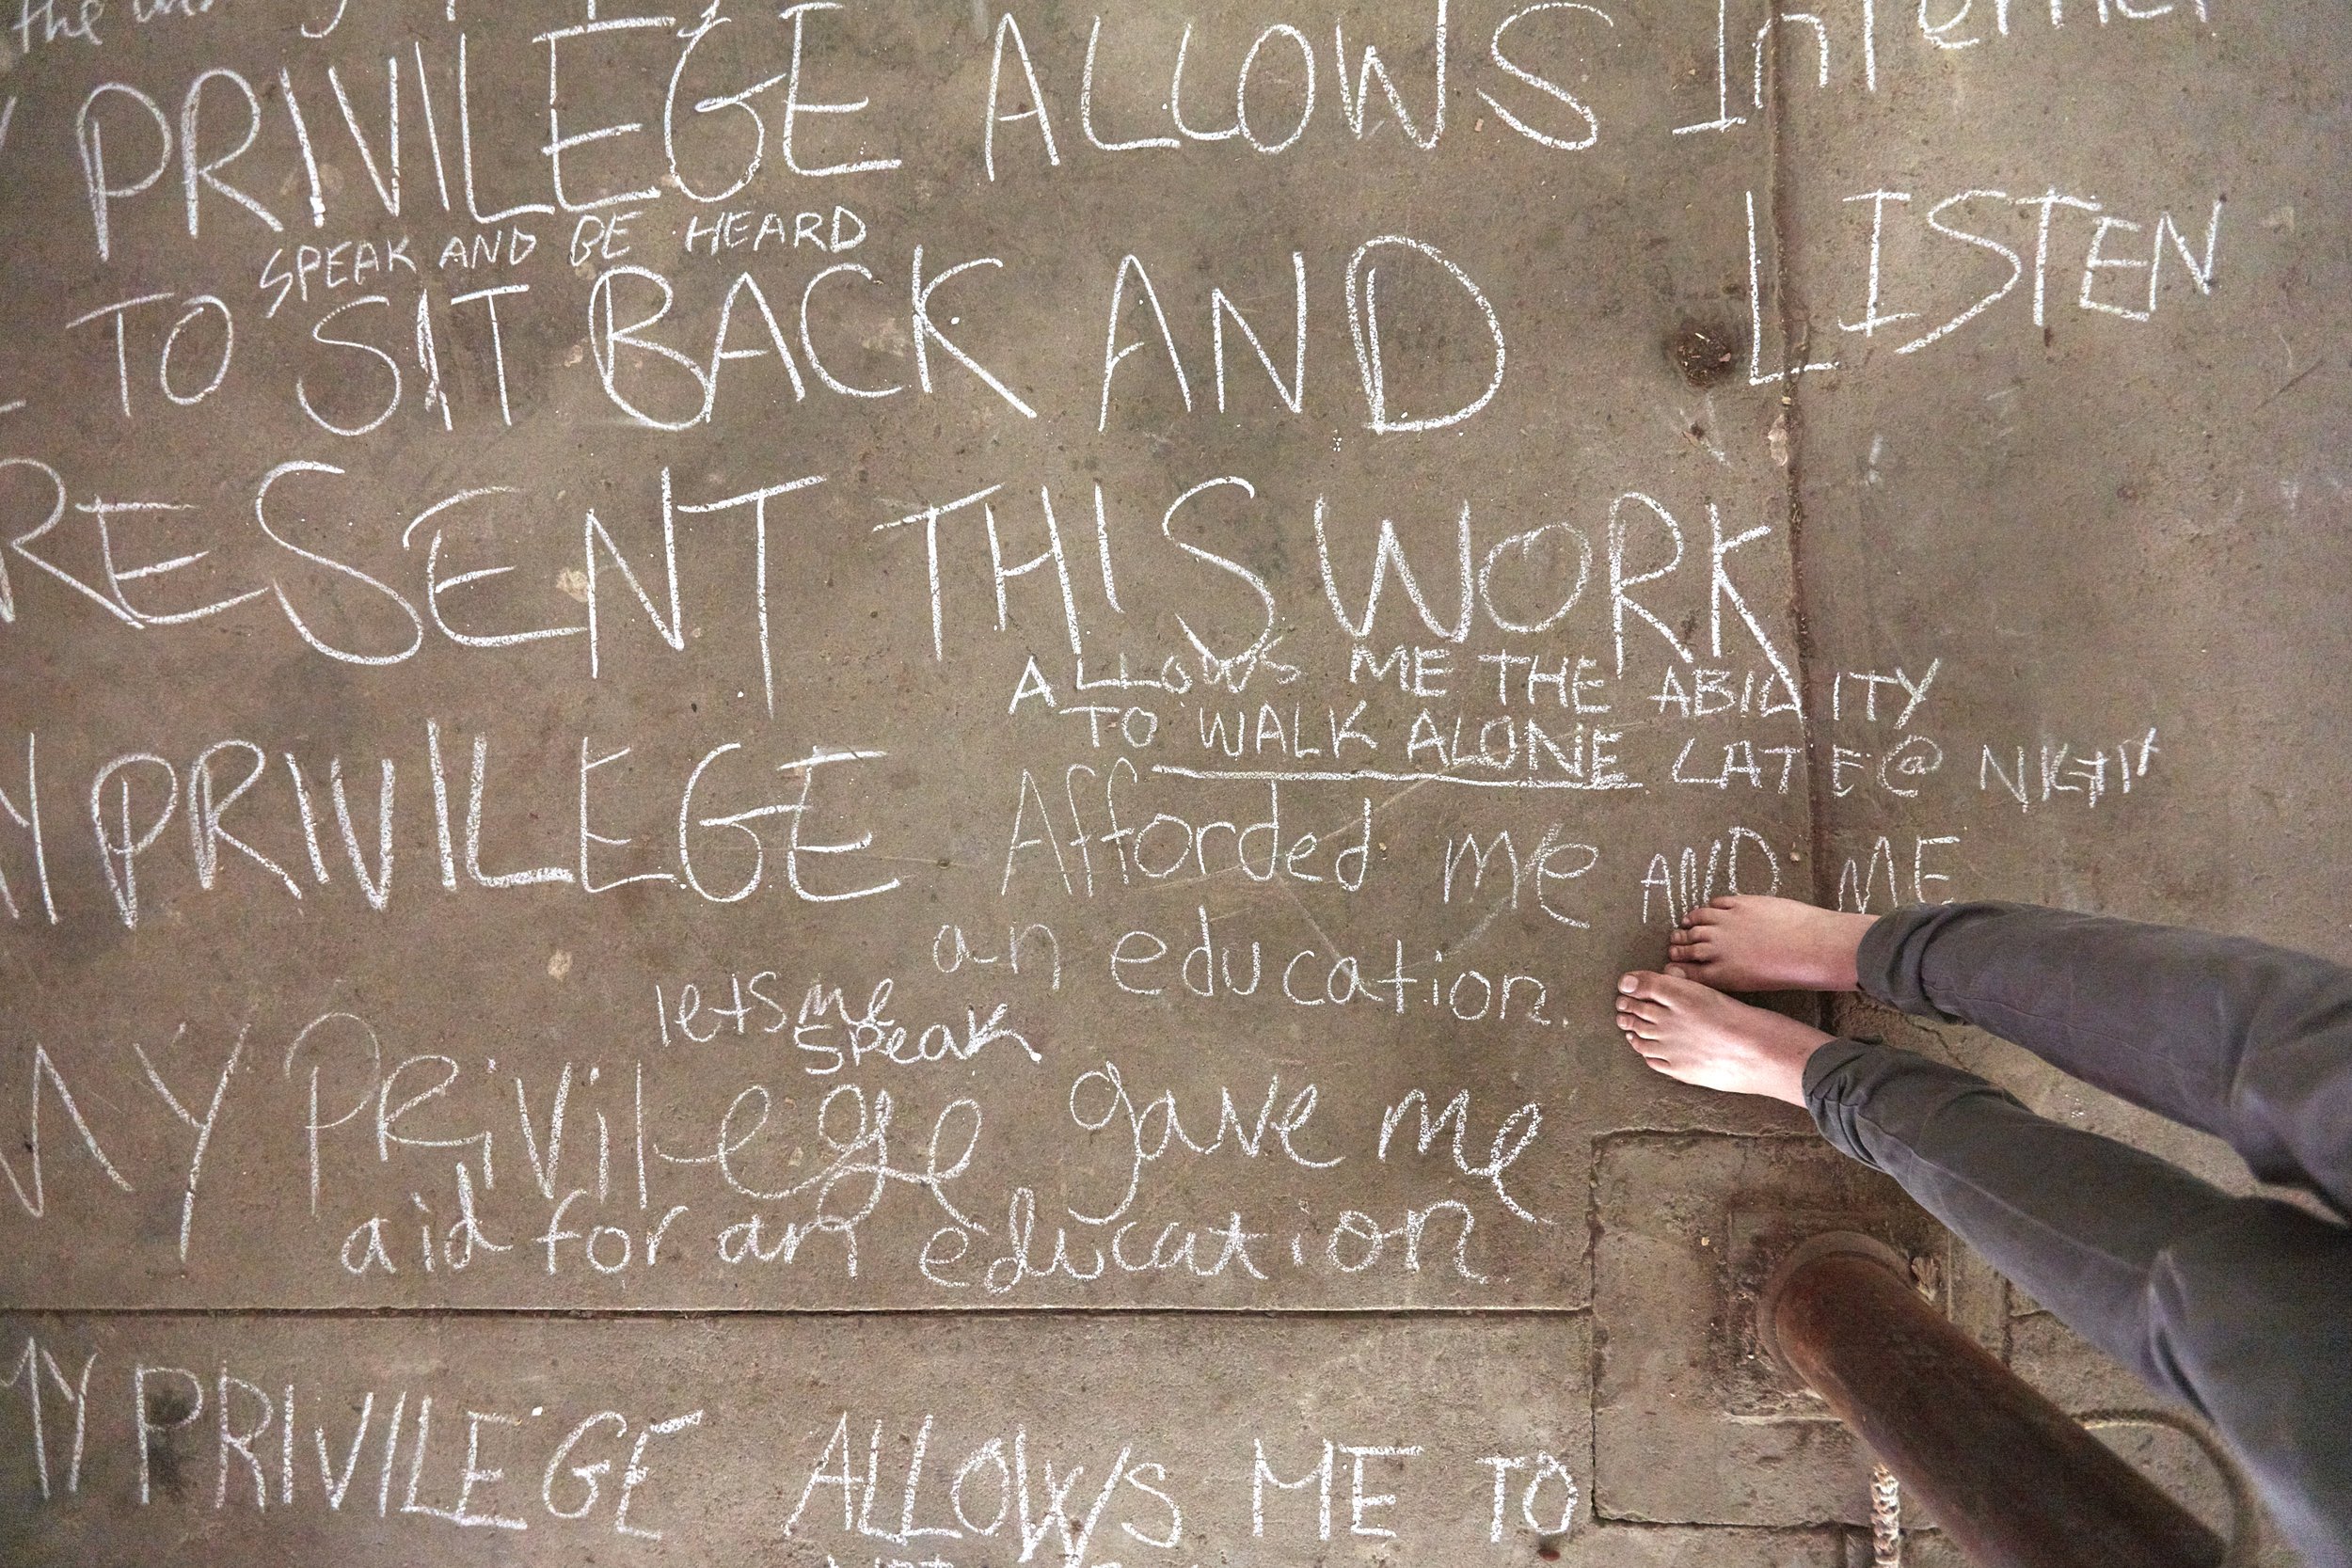 the
Internet
PRIVILEGE ALLOWS
SPEAK AND BE HEARD
TO SIT BACK AND LISTEN
RESENT THIS WORK
ALLOWS ME THE ABILITY
TO WALK ALONE LATE @ NIGHT
MY PRIVILEGE Afforded me AND ME
an education.
lets me
speak
MY PRiVilege gave me
aid for an education
MY PRIVILEGE ALLOWS ME TO